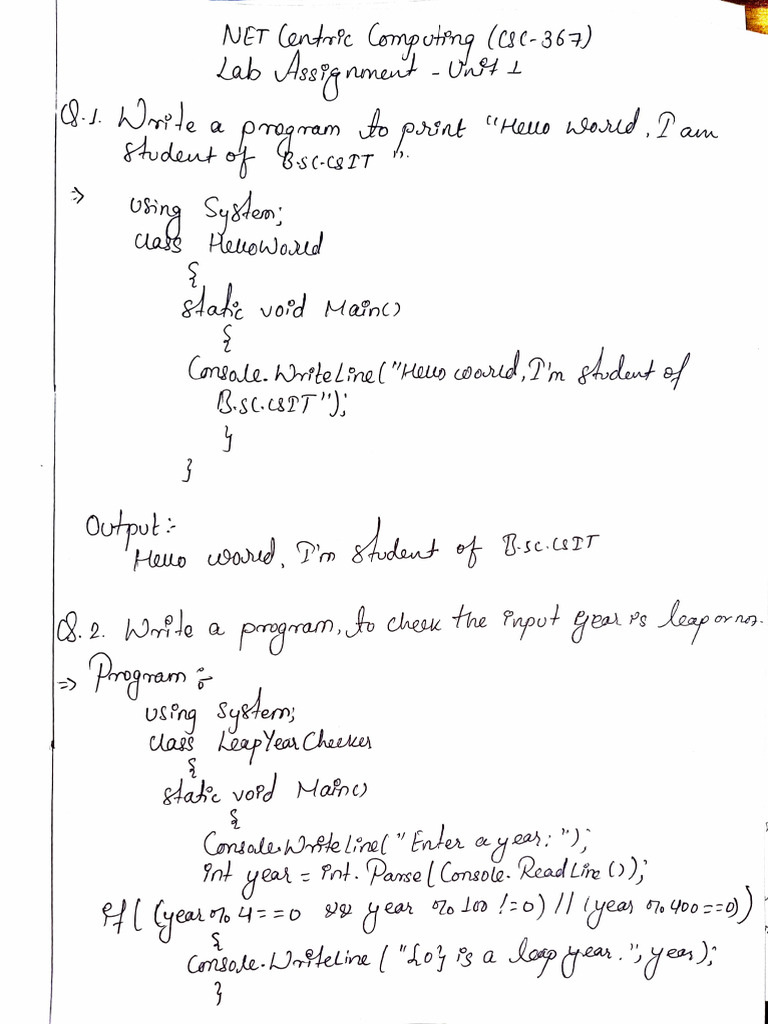 NET Centric Computing (CSC-367)
Lab Assignment - Unit 1
Q.1. Write a program to print "Hello world, I am
student of B.SC.CSIT ".
=> using System;
class HelloWorld
{
static void Main()
{
Console.WriteLine("Hello world, I'm student of
B.SC.CSIT");
}
}
Output:-
Hello world, I'm student of B.SC.CSIT
Q.2. Write a program, to check the input year is leap or not.
=> Program :-
using System;
class LeapYearChecker
{
static void Main()
{
Console.WriteLine("Enter a year: ");
int year = int.Parse(Console.ReadLine());
if( (year % 4==0 && year % 100 !=0) || (year % 400==0))
{
Console.WriteLine ("{0} is a leap year.", year);
}